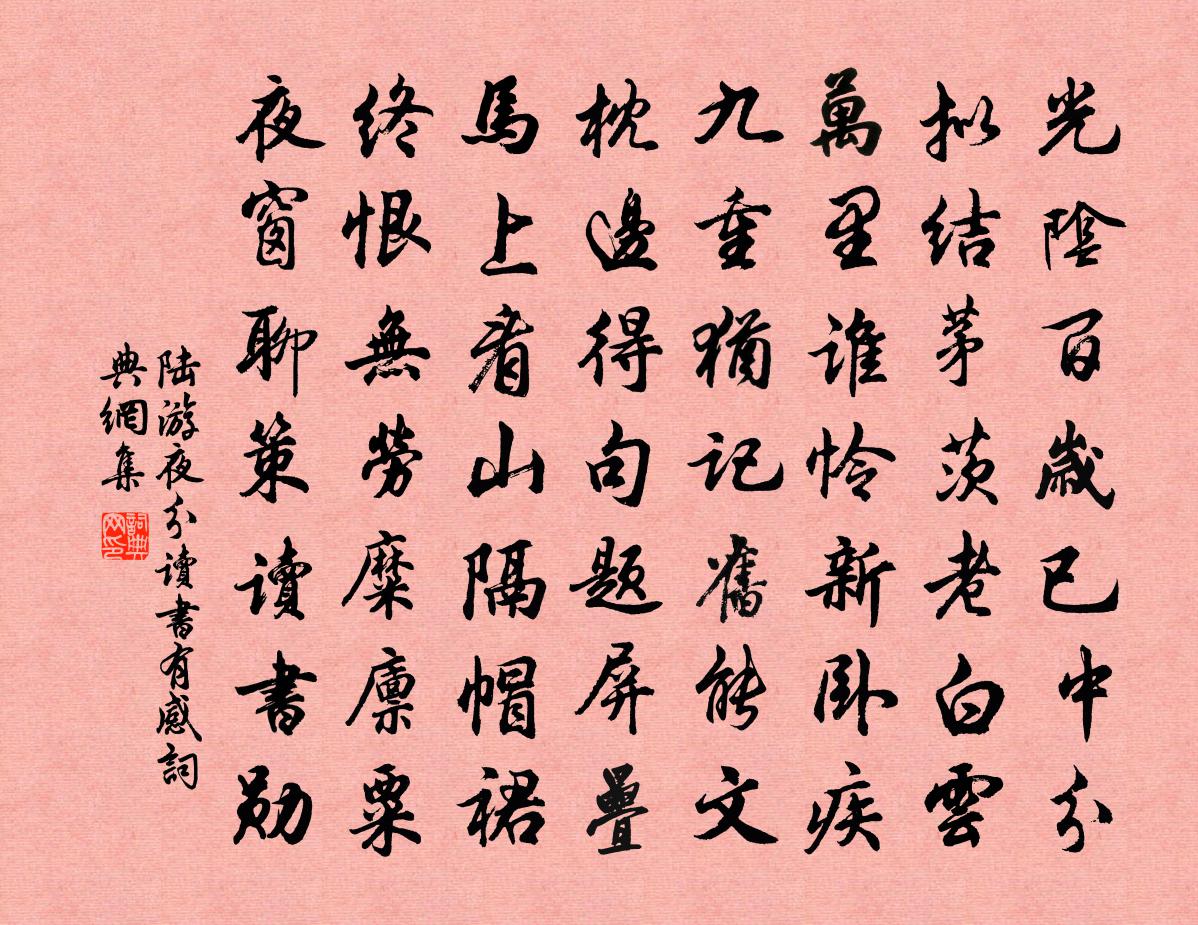 光陰百歲已中分
拟结茅茨老白雲
萬里谁怜新卧疾
九重猶记舊能文
枕邊得句题屏疊
馬上看山隔帽裙
终恨無勞糜廪粟
夜窗聊策讀書勋
陆游夜分读書有感詞
典網集
詞典
网印